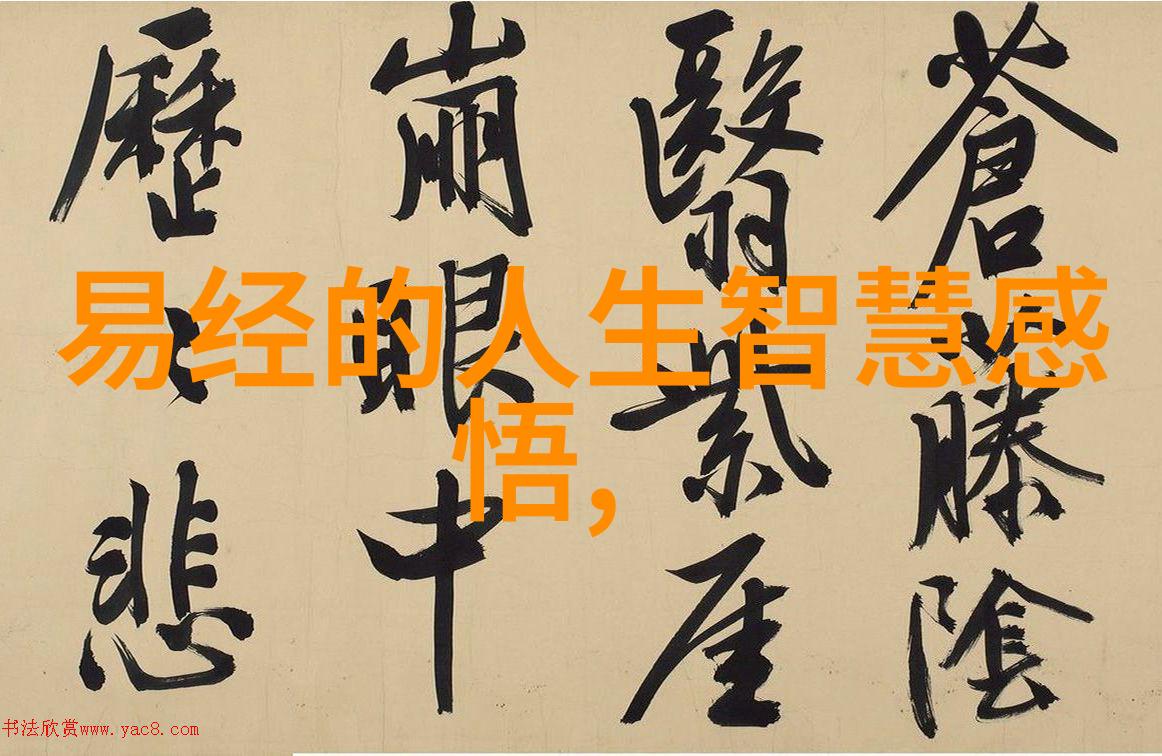 蒼藤陰
翳紫厓
崩眼中
歷〻悲
易经的人生智慧感
悟,
书法欣赏www.yac8.com